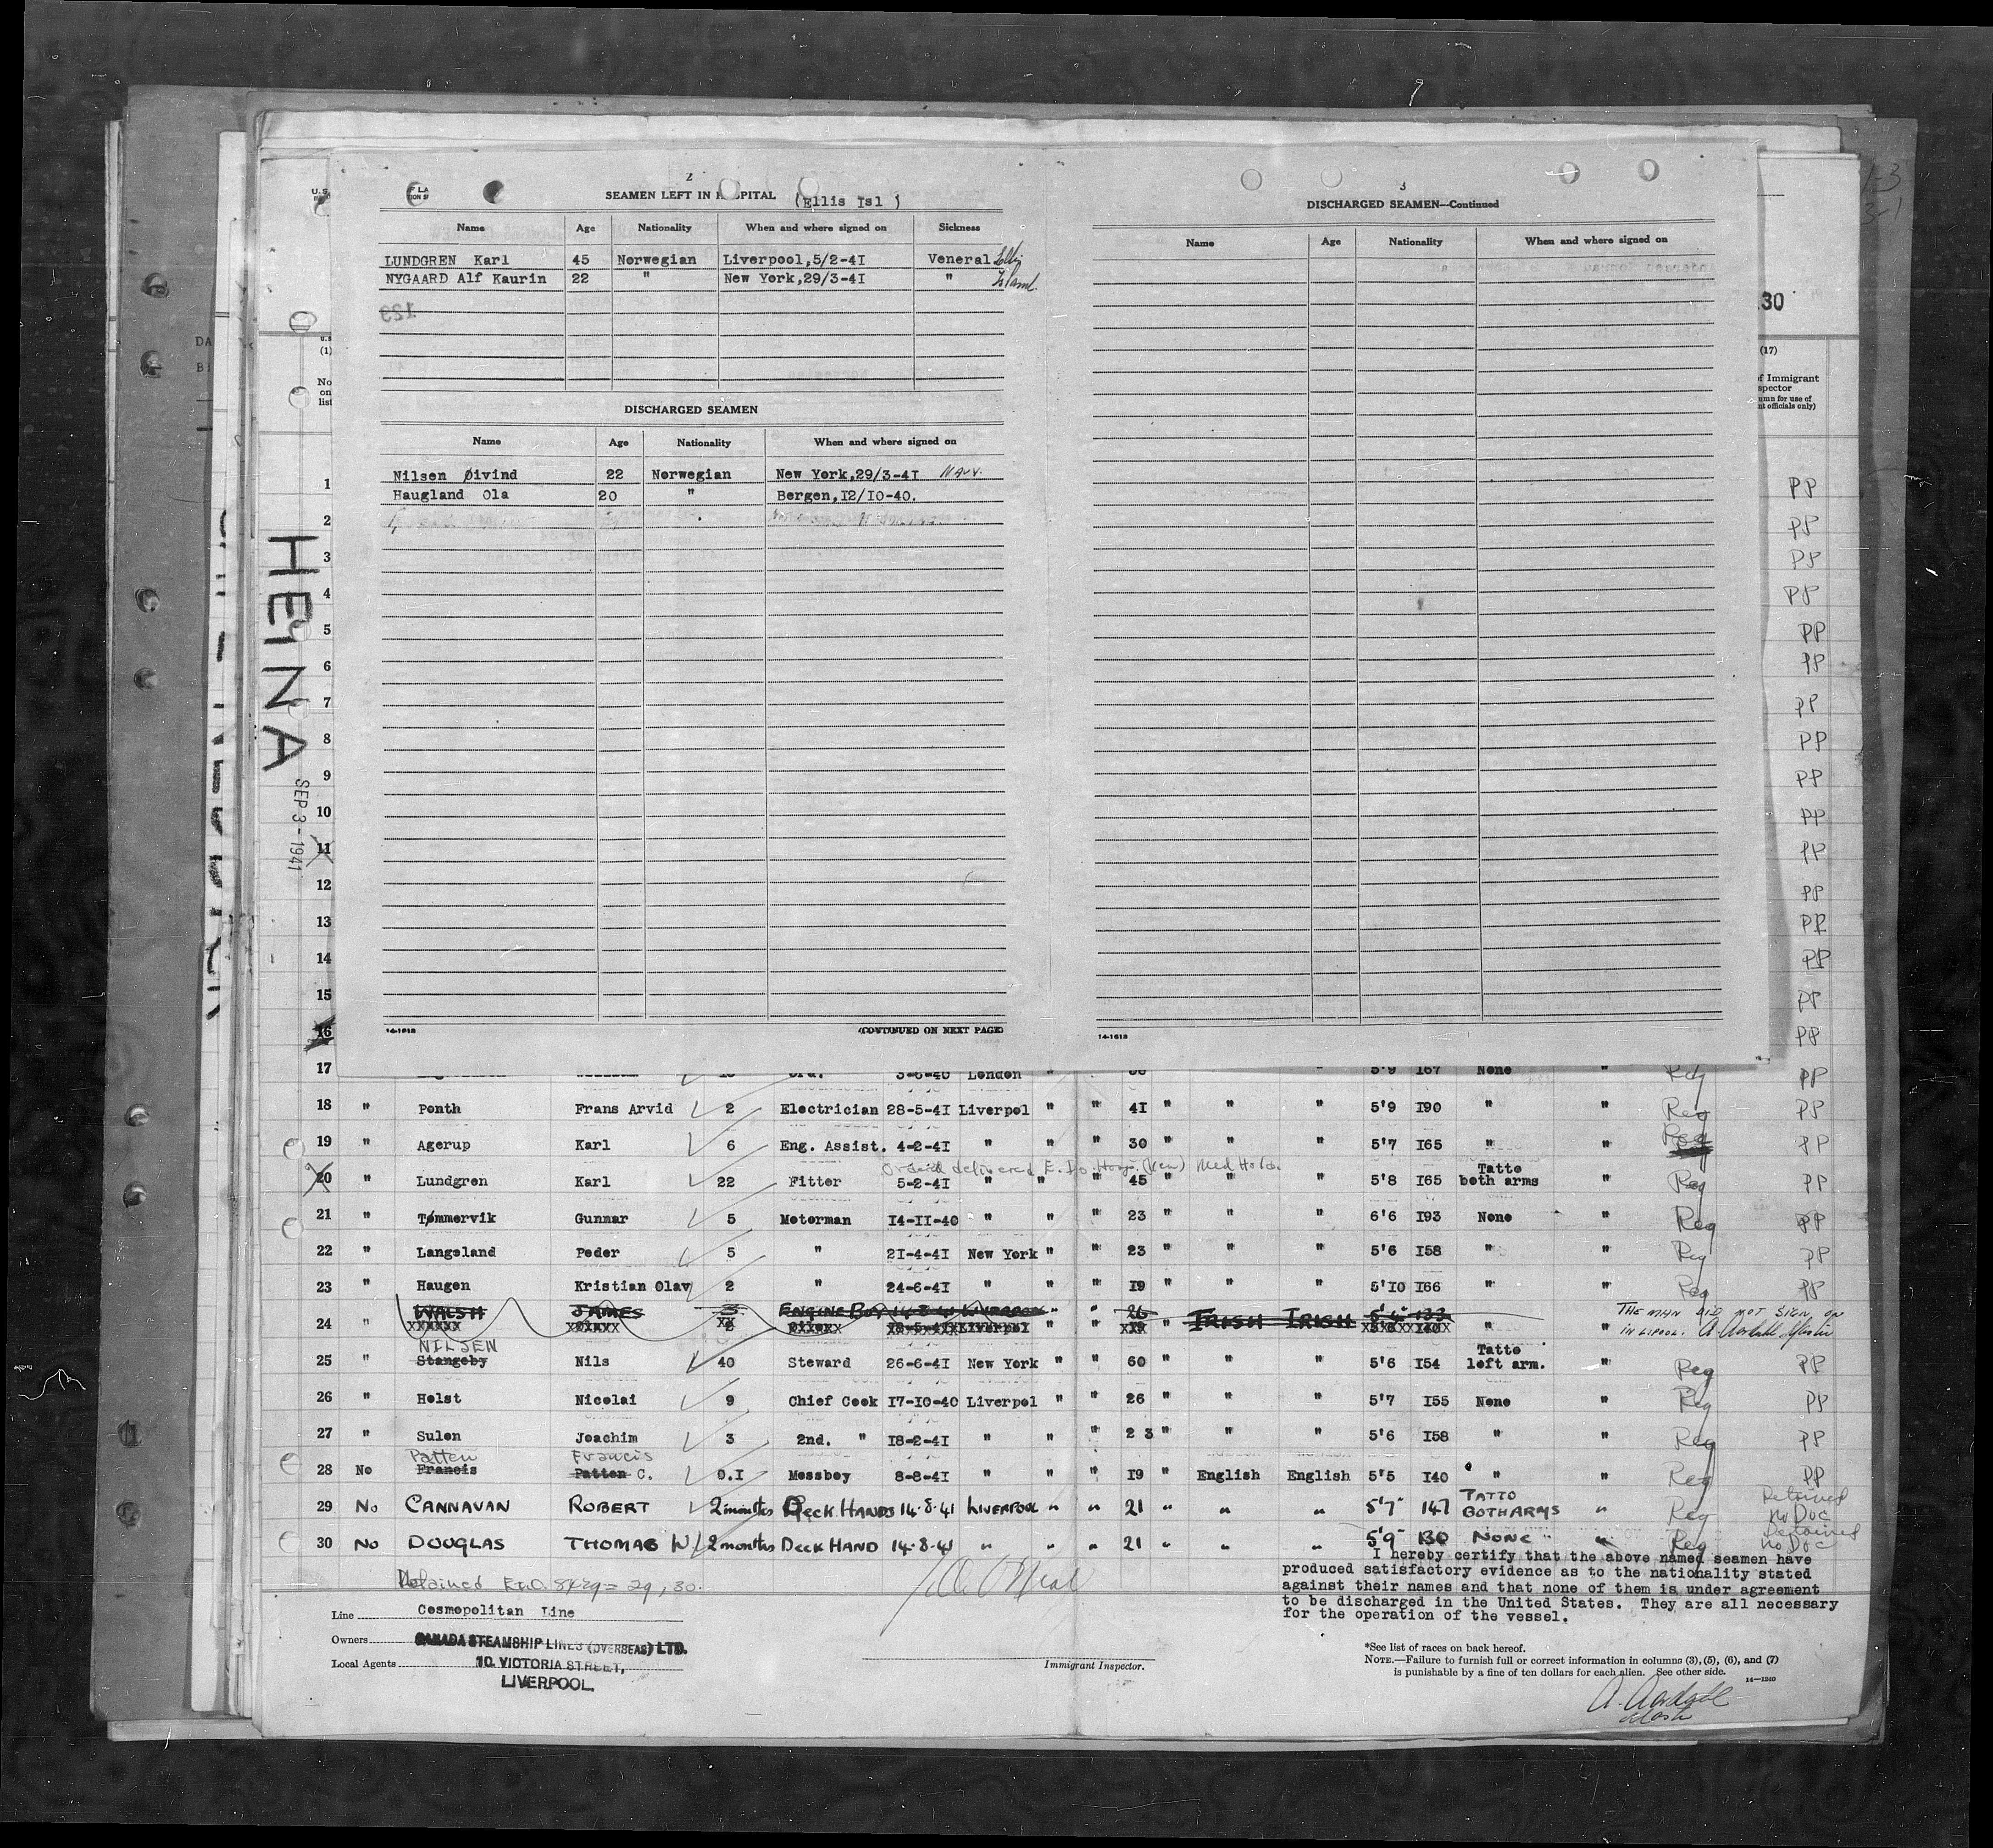 2
SEAMEN LEFT IN HOSPITAL (Ellis Isl )
Name Age Nationality When and where signed on Sickness
LUNDGREN Karl 45 Norwegian Liverpool,5/2-41 Veneral Ellis
NYGAARD Alf Kaurin 22 " New York,29/3-41 " Island.
123
DISCHARGED SEAMEN
Name Age Nationality When and where signed on
Nilsen Øivind 22 Norwegian New York,29/3-41 Navy.
Haugland Ola 20 " Bergen,12/10-40.
14-1613 (CONTINUED ON NEXT PAGE)
3
DISCHARGED SEAMEN—Continued
Name Age Nationality When and where signed on
14-1613
30
(1)
No
on
list
(17)
of Immigrant
spector
umn for use of
nt officials only)
HEINA
SEP 3 - 1941
1 PP
2 PP
3 PP
4 PP
5 PP
6 PP
7 PP
8 PP
9 PP
10 PP
11 PP
12 PP
13 PP
14 PP
15 PP
16 PP
17 3-6-40 London " 5'9 167 None " Reg PP
18 " Ponth Frans Arvid 2 Electrician 28-5-41 Liverpol " " 41 " " " 5'9 190 " " Reg PP
19 " Agerup Karl 6 Eng. Assist. 4-2-41 " " " 30 " " " 5'7 165 " " Reg PP
20 " Lundgren Karl 22 Fitter 5-2-41 " " " 45 " " " 5'8 165 Tatto both arms " Reg PP
21 " Tømmervik Gunnar 5 Motorman 14-11-40 " " " 23 " " " 6'6 193 None " Reg PP
22 " Langeland Peder 5 " 21-4-41 New York " " 23 " " " 5'6 158 " " Reg PP
23 " Haugen Kristian Olav 2 " 24-6-41 " " " 19 " " " 5'10 166 " " Reg PP
WALSH JAMES 3 ENGINE BOY 14-8-41 LIVERPOOL " " 26 IRISH IRISH 5'4" 133 THE MAN DID NOT SIGN ON
24 " " " " " " IN LIPOOL. A. Aardahl Master
NILSEN
25 " Stangeby Nils 40 Steward 26-6-41 New York " " 60 " " " 5'6 154 Tatto left arm. " Reg PP
26 " Holst Nicolai 9 Chief Cook 17-10-40 Liverpol " " 26 " " " 5'7 155 None " Reg PP
27 " Sulen Joachim 3 2nd. " 18-2-41 " " " 23 " " " 5'6 158 " " Reg PP
Patten Francis
28 No Francis Patten C. 0.1 Messboy 8-8-41 " " " 19 " English English 5'5 140 " " Reg PP
29 No CANNAVAN ROBERT 2 months DECK HANDS 14.8.41 LIVERPOOL " " 21 " " " 5'7" 147 TATTO BOTH ARMS " Reg Detained no Doc
30 No DOUGLAS THOMAS W 2 months DECK HAND 14.8.41 " " " 21 " " " 5'9" 130 NONE " Reg Detained no Doc
I hereby certify that the above named seamen have
produced satisfactory evidence as to the nationality stated
against their names and that none of them is under agreement
to be discharged in the United States. They are all necessary
for the operation of the vessel.
Line Cosmopolitan Line
Owners CANADA STEAMSHIP LINES (OVERSEAS) LTD.
Local Agents 10. VICTORIA STREET,
LIVERPOOL.
Immigrant Inspector.
*See list of races on back hereof.
NOTE.—Failure to furnish full or correct information in columns (3), (5), (6), and (7)
is punishable by a fine of ten dollars for each alien. See other side.
14—1240
A. Aardahl
Master